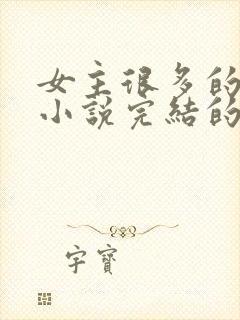 女主很多的
小說完結的
字寶